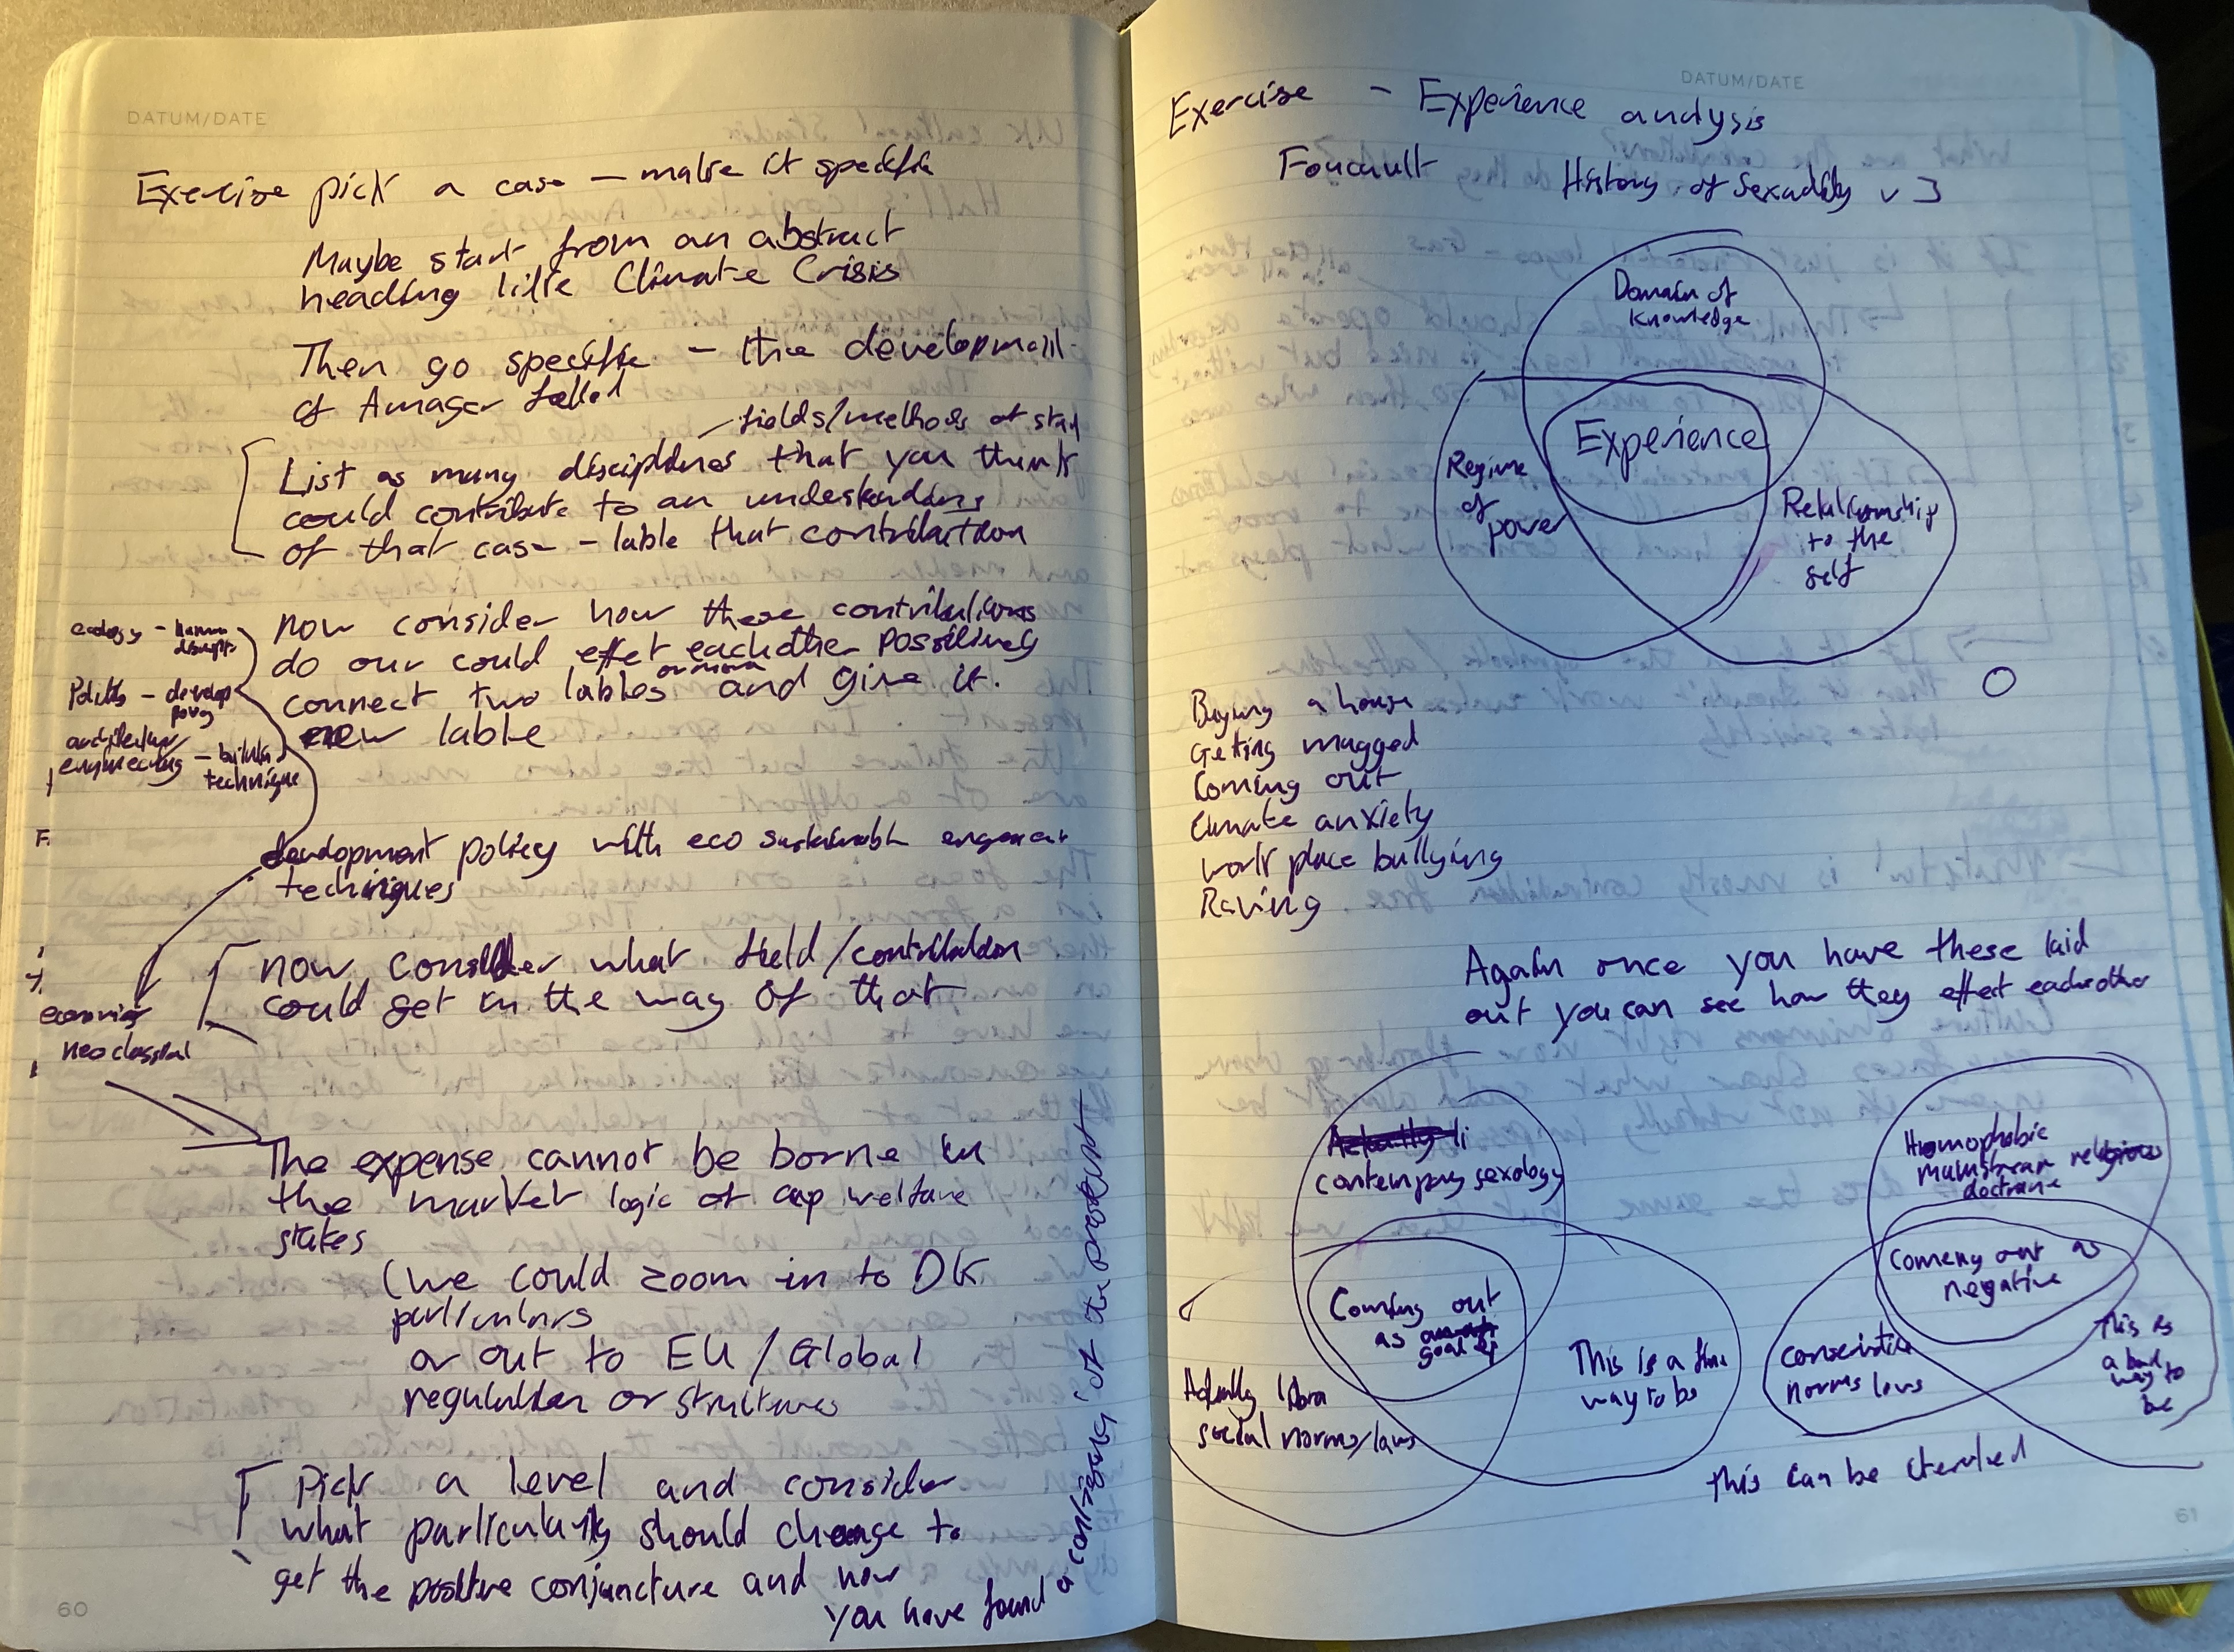 DATUM/DATE
Exercise pick a case – make it specific
Maybe start from an abstract
heading like Climate Crisis
Then go specific – the development
of Amager fælled
fields/methods of study
List as many disciplines that you think
could contribute to an understanding
of that case – lable that contribution
now consider how these contributions
do our could effet eachother possitively
connect two lables or more and give it
new lable
ecology – human
disrupt
Politics – develop
policy
architecture
engineering – building
technique
development policy with eco sustainable
techniques
now consider what field/contribution
could get in the way of that
economics
neoclassical
The expense cannot be borne in
the market logic of cap welfare
states
(we could zoom in to DK
particulars
or out to EU/Global
regulation or structures
Pick a level and consider
what particularity should change to
get the positive conjuncture and now
you have found
a contingency of the present
60
DATUM/DATE
Exercise – Experience analysis
Foucault History of Sexuality v 3
Domain of
Knowledge
Experience
Regime
of
power
Relationship
to the
self
Buying a house
Getting mugged
Coming out
Climate anxiety
work place bullying
Raving
Again once you have these laid
out you can see how they effect eachother
contempory sexology
Coming out
as
goal
social norms/laws
This is a fine
way to be
Homophobic
mainstream religious
doctrine
Comeng out as
negative
conservative
norms laws
This is
a bad
way to
be
This can be
61